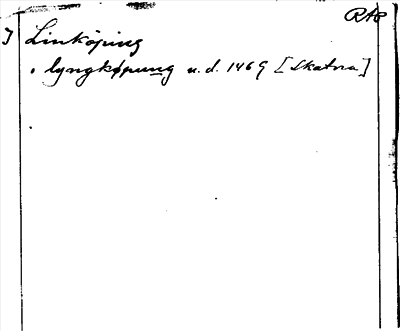 RAP
I Linköping
. lyngkøpung u.d. 1469 [Skatna]